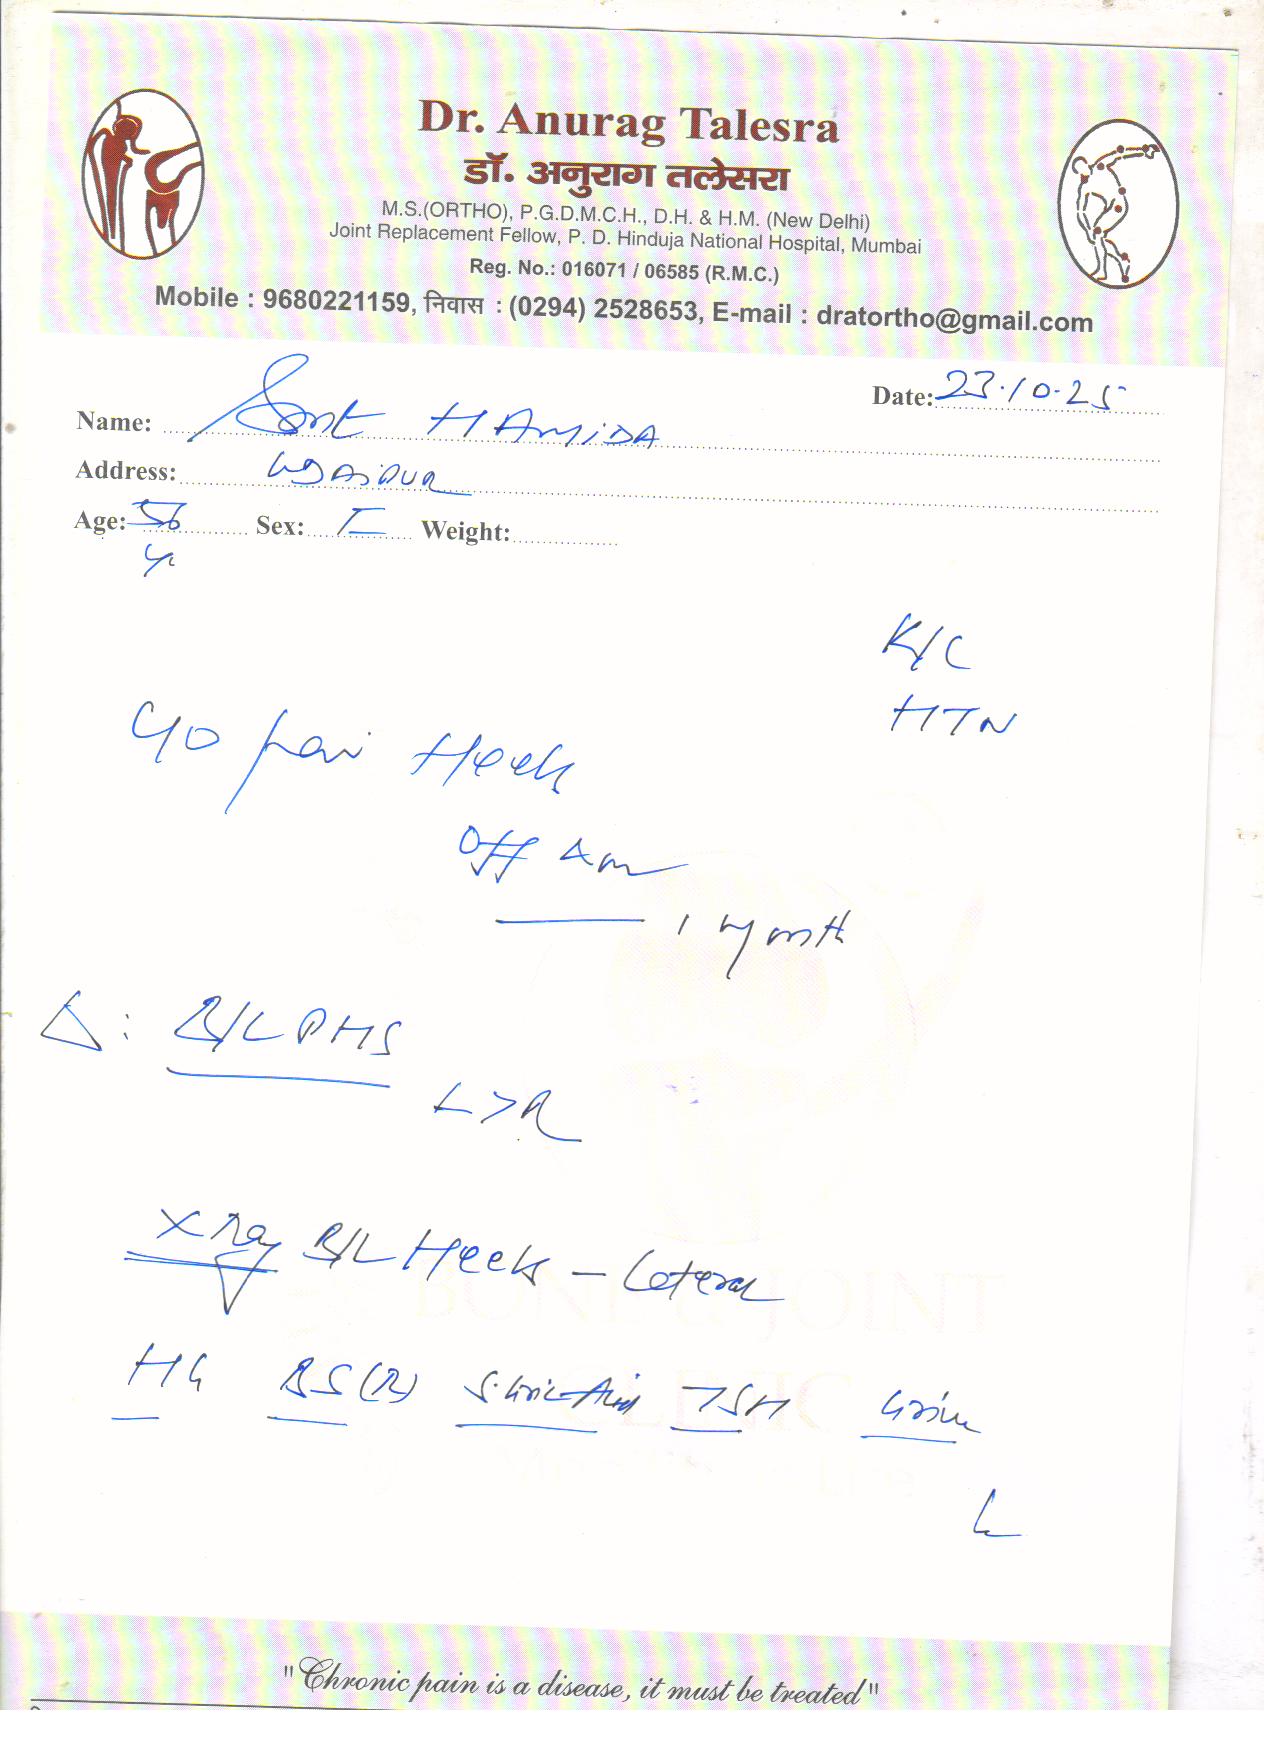 Dr. Anurag Talesra
डॉ. अनुराग तलेसरा
M.S.(ORTHO), P.G.D.M.C.H., D.H. & H.M. (New Delhi)
Joint Replacement Fellow, P. D. Hinduja National Hospital, Mumbai
Reg. No.: 016071 / 06585 (R.M.C.)
Mobile : 9680221159, निवास : (0294) 2528653, E-mail : dratortho@gmail.com
Date: 23.10.25
Name: Smt HAMIDA
Address: UDAIPUR
Age: 56 Sex: F Weight:
yr
K/C
HTN
C/O pain Heels
Off &
1 Month
Δ: B/L PHS
L>R
X Ray B/L Heels - Lateral
BONE & JOINT
HG BS(R) S. Uric Acid TSH Urine
CLINIC
"Chronic pain is a disease, it must be treated"